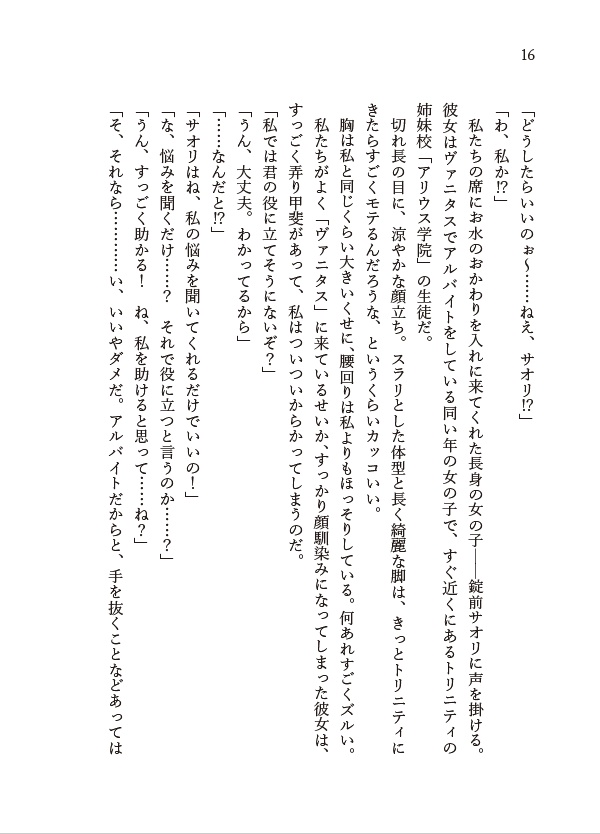 16
「どうしたらいいのぉ～……ねえ、サオリ!?」
「わ、私か!?」
　私たちの席にお水のおかわりを入れに来てくれた長身の女の子――錠前サオリに声を掛ける。
彼女はヴァニタスでアルバイトをしている同い年の女の子で、すぐ近くにあるトリニティの
姉妹校「アリウス学院」の生徒だ。
　切れ長の目に、涼やかな顔立ち。スラリとした体型と長く綺麗な脚は、きっとトリニティに
きたらすごくモテるんだろうな、というくらいカッコいい。
　胸は私と同じくらい大きいくせに、腰回りは私よりもほっそりしている。何あれすごくズルい。
　私たちがよく「ヴァニタス」に来ているせいか、すっかり顔馴染みになってしまった彼女は、
すっごく弄り甲斐があって、私はついついからかってしまうのだ。
「私では君の役に立てそうにないぞ？」
「うん、大丈夫。わかってるから」
「……なんだと!?」
「サオリはね、私の悩みを聞いてくれるだけでいいの！」
「な、悩みを聞くだけ……？　それで役に立つと言うのか……？」
「うん、すっごく助かる！　ね、私を助けると思って……ね？」
「そ、それなら…………い、いいやダメだ。アルバイトだからと、手を抜くことなどあっては